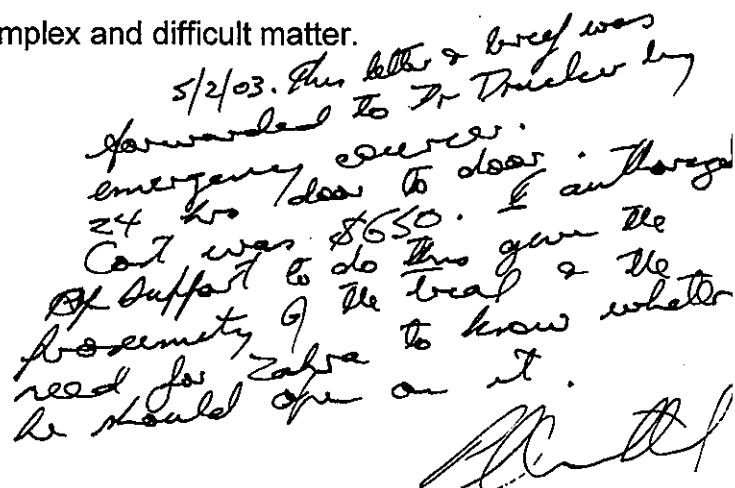 mplex and difficult matter.
5/2/03. This letter & brief was
forwarded to Dr Drucker by
emergency courier.
24 hrs door to door.
Cost was $650. I authorized
support to do this given the
proximity of the trial & the
need for Zahra to know whether
he should open on it.